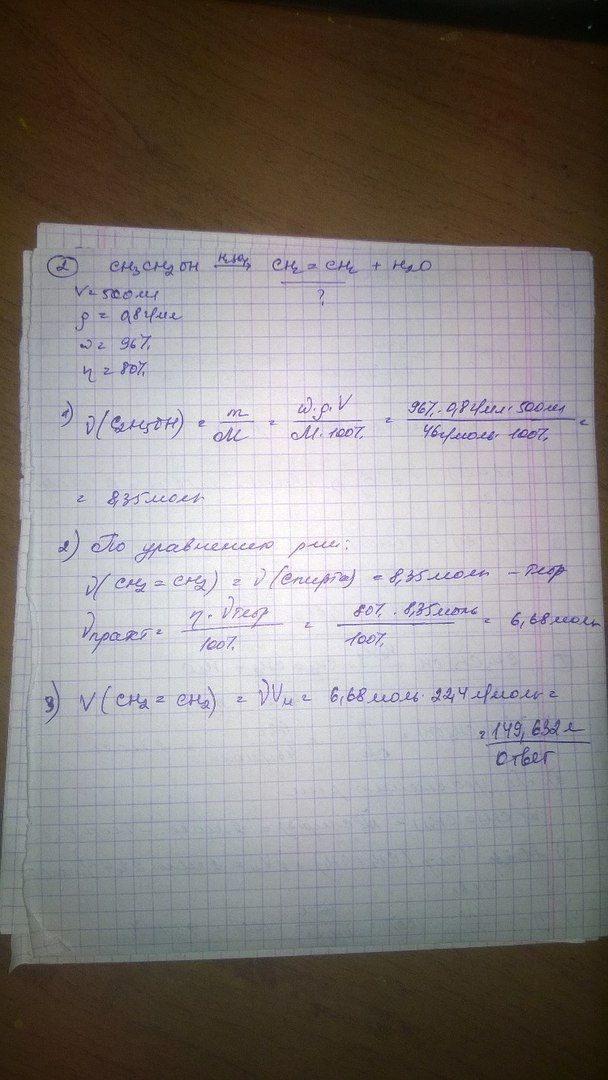 2 CH3CH2OH H2SO4 → CH2 = CH2 + H2O
V = 500мл ?
ρ = 0,8 г/мл
ω = 96%
η = 80%
1) ν(C2H5OH) = m/M = ω·ρ·V / M·100% = 96%·0,8 г/мл·500мл / 46г/моль·100% =
= 8,35 моль
2) По уравнению р-ии:
ν(CH2 = CH2) = ν(спирта) = 8,35 моль – теор
νпракт = η·νтеор / 100% = 80%·8,35моль / 100% = 6,68 моль
3) V(CH2 = CH2) = νVм = 6,68 моль·22,4 л/моль =
= 149,632 л
Ответ